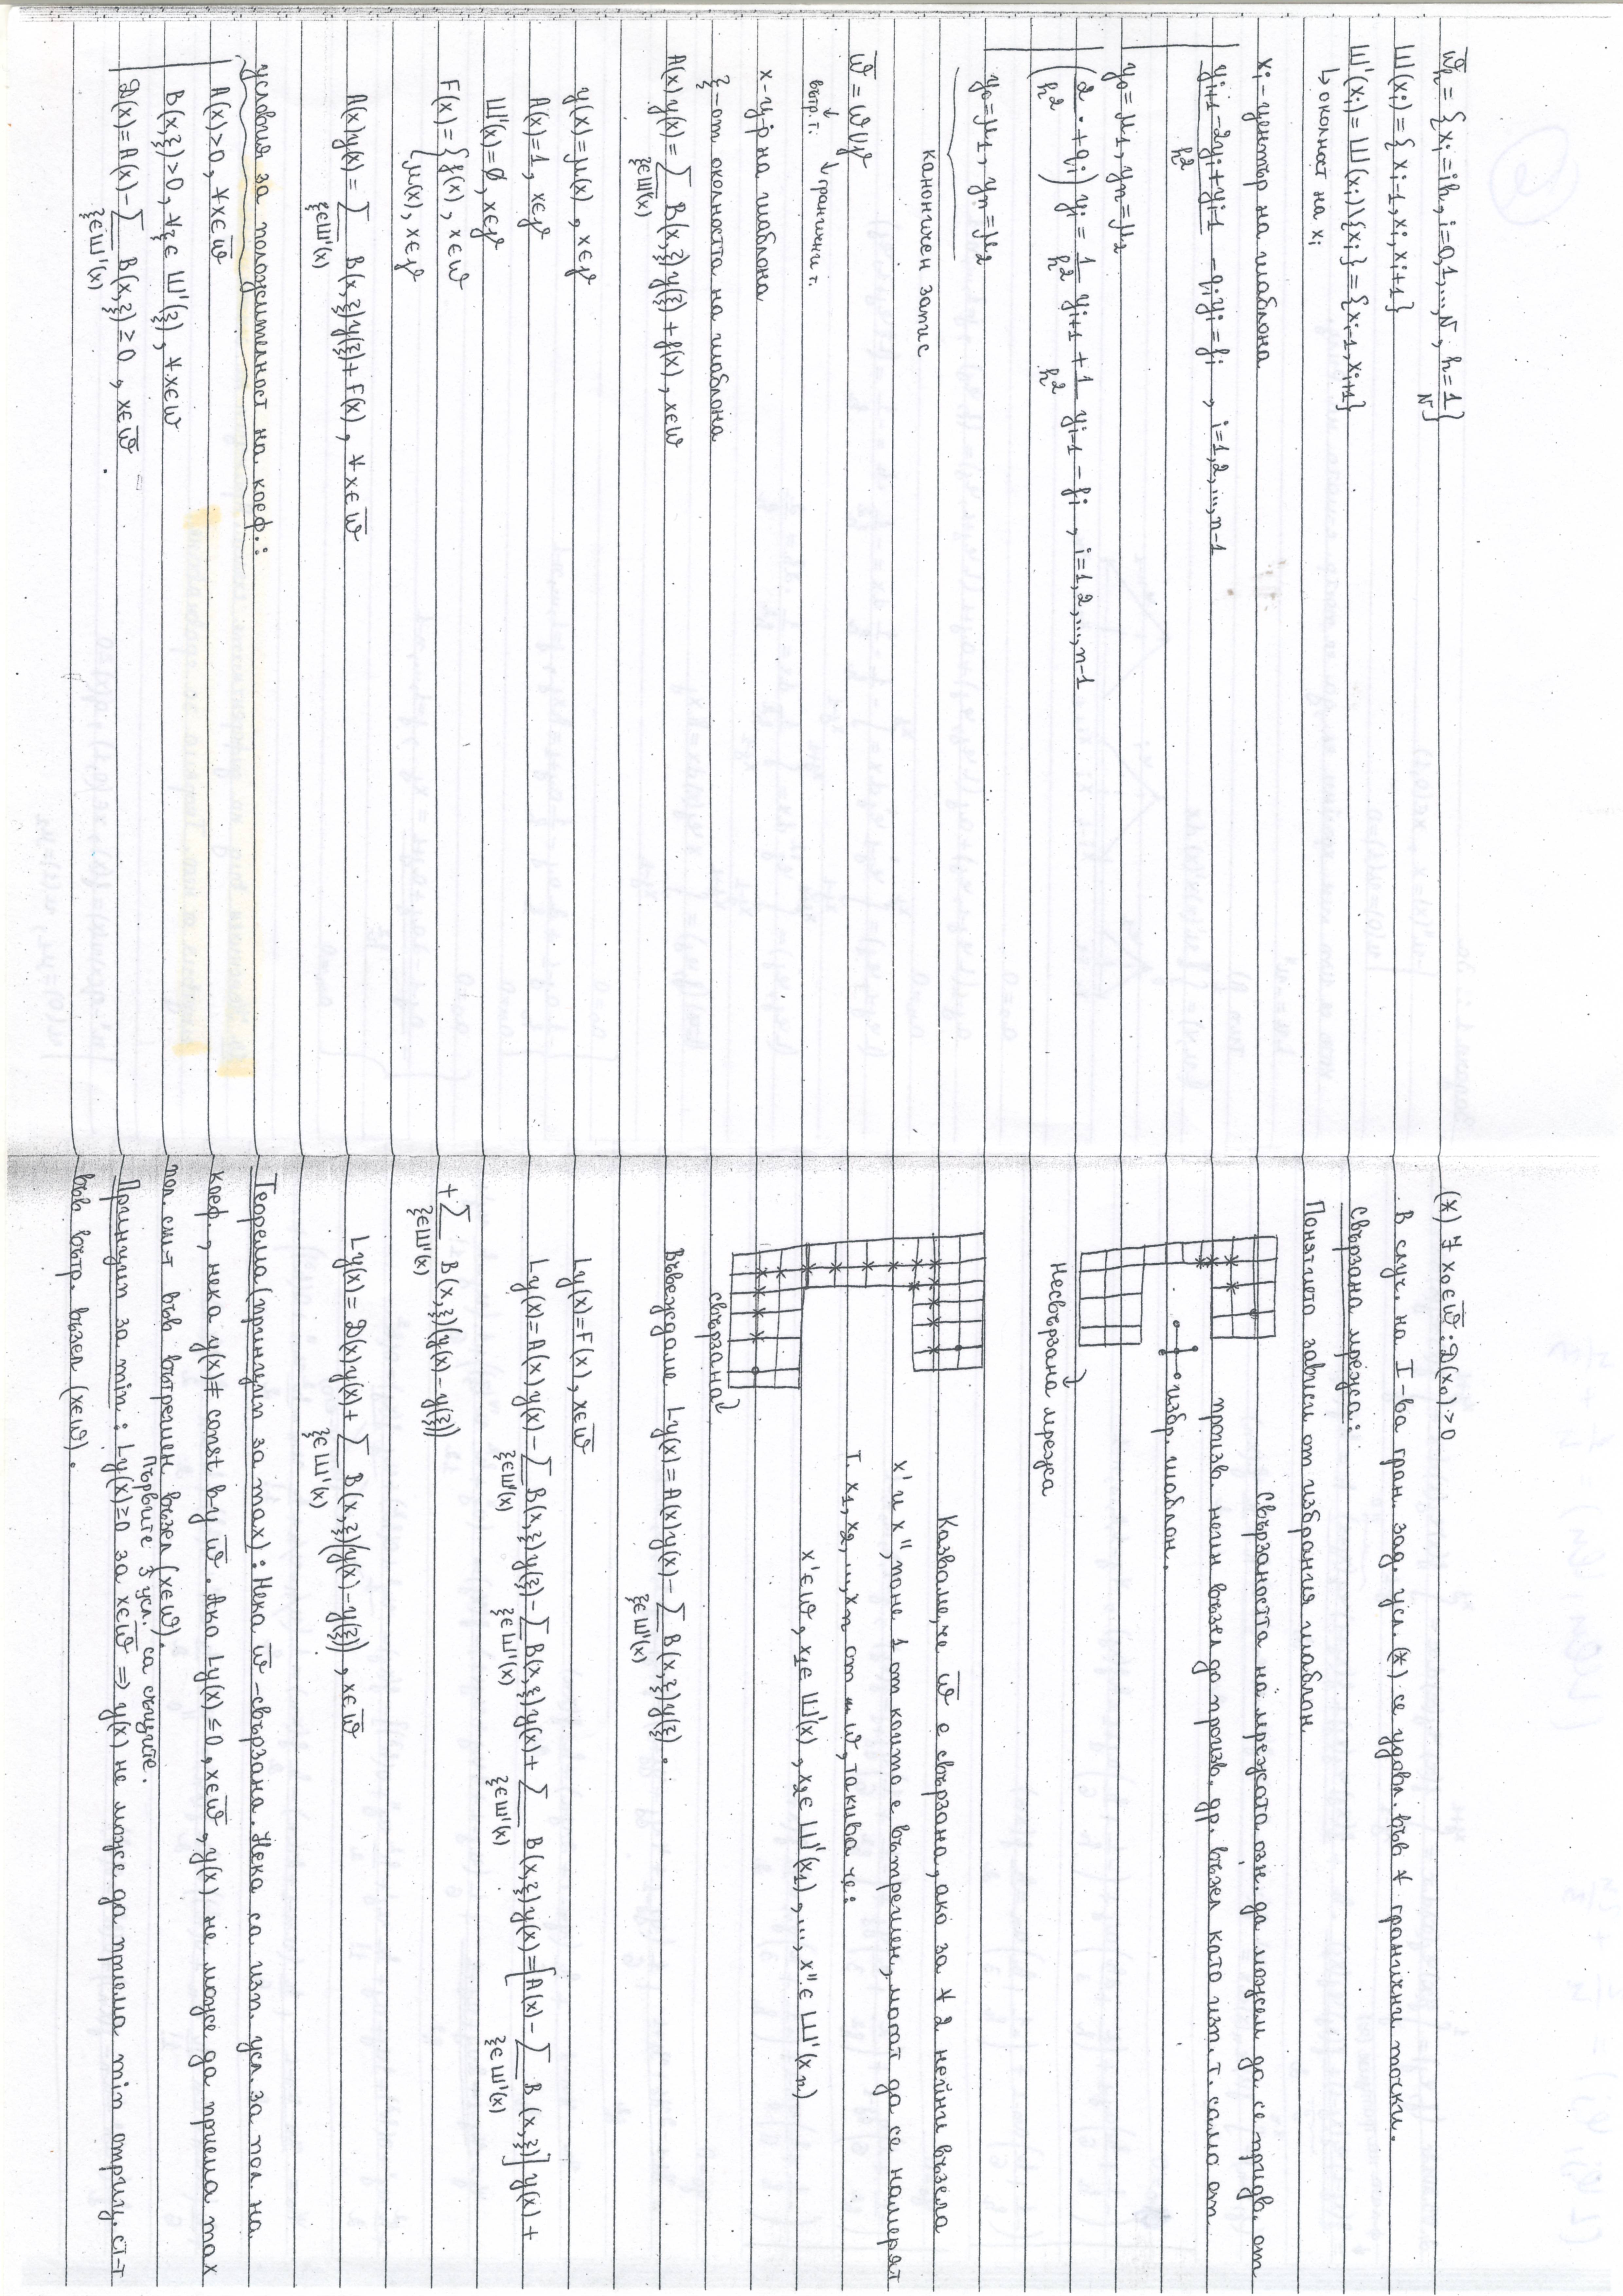 2
ω̄h = {xi = ih, i=0,1,...,N, h=1/N}
Ш(xi) = {xi-1, xi, xi+1}
Ш'(xi) = Ш(xi)\{xi} = {xi-1, xi+1}
↳ околност на xi
xi - център на шаблона
(yi+1 - 2yi + yi-1)/h² - qiyi = fi , i=1,2,...,n-1
y0=μ1, yn=μ2
(2/h² + qi) yi = 1/h² yi+1 + 1/h² yi-1 - fi , i=1,2,...,n-1
y0=μ1, yn=μ2
каноничен запис
ω̄ = ω∪γ
вътр.т. гранични т.
x - у-р на шаблона
ξ - от околността на шаблона
A(x)y(x) = ∑ B(x,ξ)y(ξ) + f(x), x∈ω
ξ∈Ш'(x)
y(x)=μ(x), x∈γ
A(x)=1, x∈γ
Ш'(x)=∅, x∈γ
F(x) = { f(x), x∈ω
μ(x), x∈γ
A(x)y(x) = ∑ B(x,ξ)y(ξ) + F(x), ∀x∈ω̄
ξ∈Ш'(x)
условия за положителност на коеф.:
A(x)>0, ∀x∈ω̄
B(x,ξ)>0, ∀ξ∈Ш'(ξ), ∀x∈ω
D(x) = A(x) - ∑ B(x,ξ) ≥ 0, x∈ω̄
ξ∈Ш'(x)
(*) ∃ x0∈ω̄ : D(x0)>0
В случ. на I-ва гран. зад. усл. (*) се удовл. във ∀ гранични точки.
Свързана мрежа:
Понятието зависи от избрания шаблон.
Свързаността на мрежата озн. да можем да се придв. от
произв. неин възел до произв. др. възел като изп. т. само от
избр. шаблон.
Несвързана мрежа
Казваме, че ω̄ е свързана, ако за ∀ 2 нейни възела
x' и x'', поне 1 от които е вътрешен, могат да се намерят
т. x1, x2, ..., xn от ω, такива че:
x'∈ω, x1∈Ш'(x), x2∈Ш'(x1), ..., x''∈Ш'(xn)
свързана
Въвеждаме Ly(x) = A(x)y(x) - ∑ B(x,ξ)y(ξ).
ξ∈Ш'(x)
Ly(x)=F(x), x∈ω̄
Ly(x) = A(x)y(x) - ∑ B(x,ξ)y(ξ) - ∑ B(x,ξ)y(x) + ∑ B(x,ξ)y(x) = [A(x) - ∑ B(x,ξ)] y(x) +
ξ∈Ш'(x) ξ∈Ш'(x) ξ∈Ш'(x) ξ∈Ш'(x)
+ ∑ B(x,ξ)(y(x) - y(ξ))
ξ∈Ш'(x)
Ly(x) = D(x)y(x) + ∑ B(x,ξ)(y(x) - y(ξ)), x∈ω̄
ξ∈Ш'(x)
Теорема (принцип за max): Нека ω̄ - свързана. Нека са изп. усл. за пол. на
коеф., нека y(x)≠const в-у ω̄. Ако Ly(x)≤0, x∈ω̄, y(x) не може да приема max
пол. ст-т във вътрешен възел (x∈ω).
Първите 3 усл. са същите.
Принцип за min: Ly(x)≥0 за x∈ω̄ ⇒ y(x) не може да приема min отриц. ст-т
във вътр. възел (x∈ω).